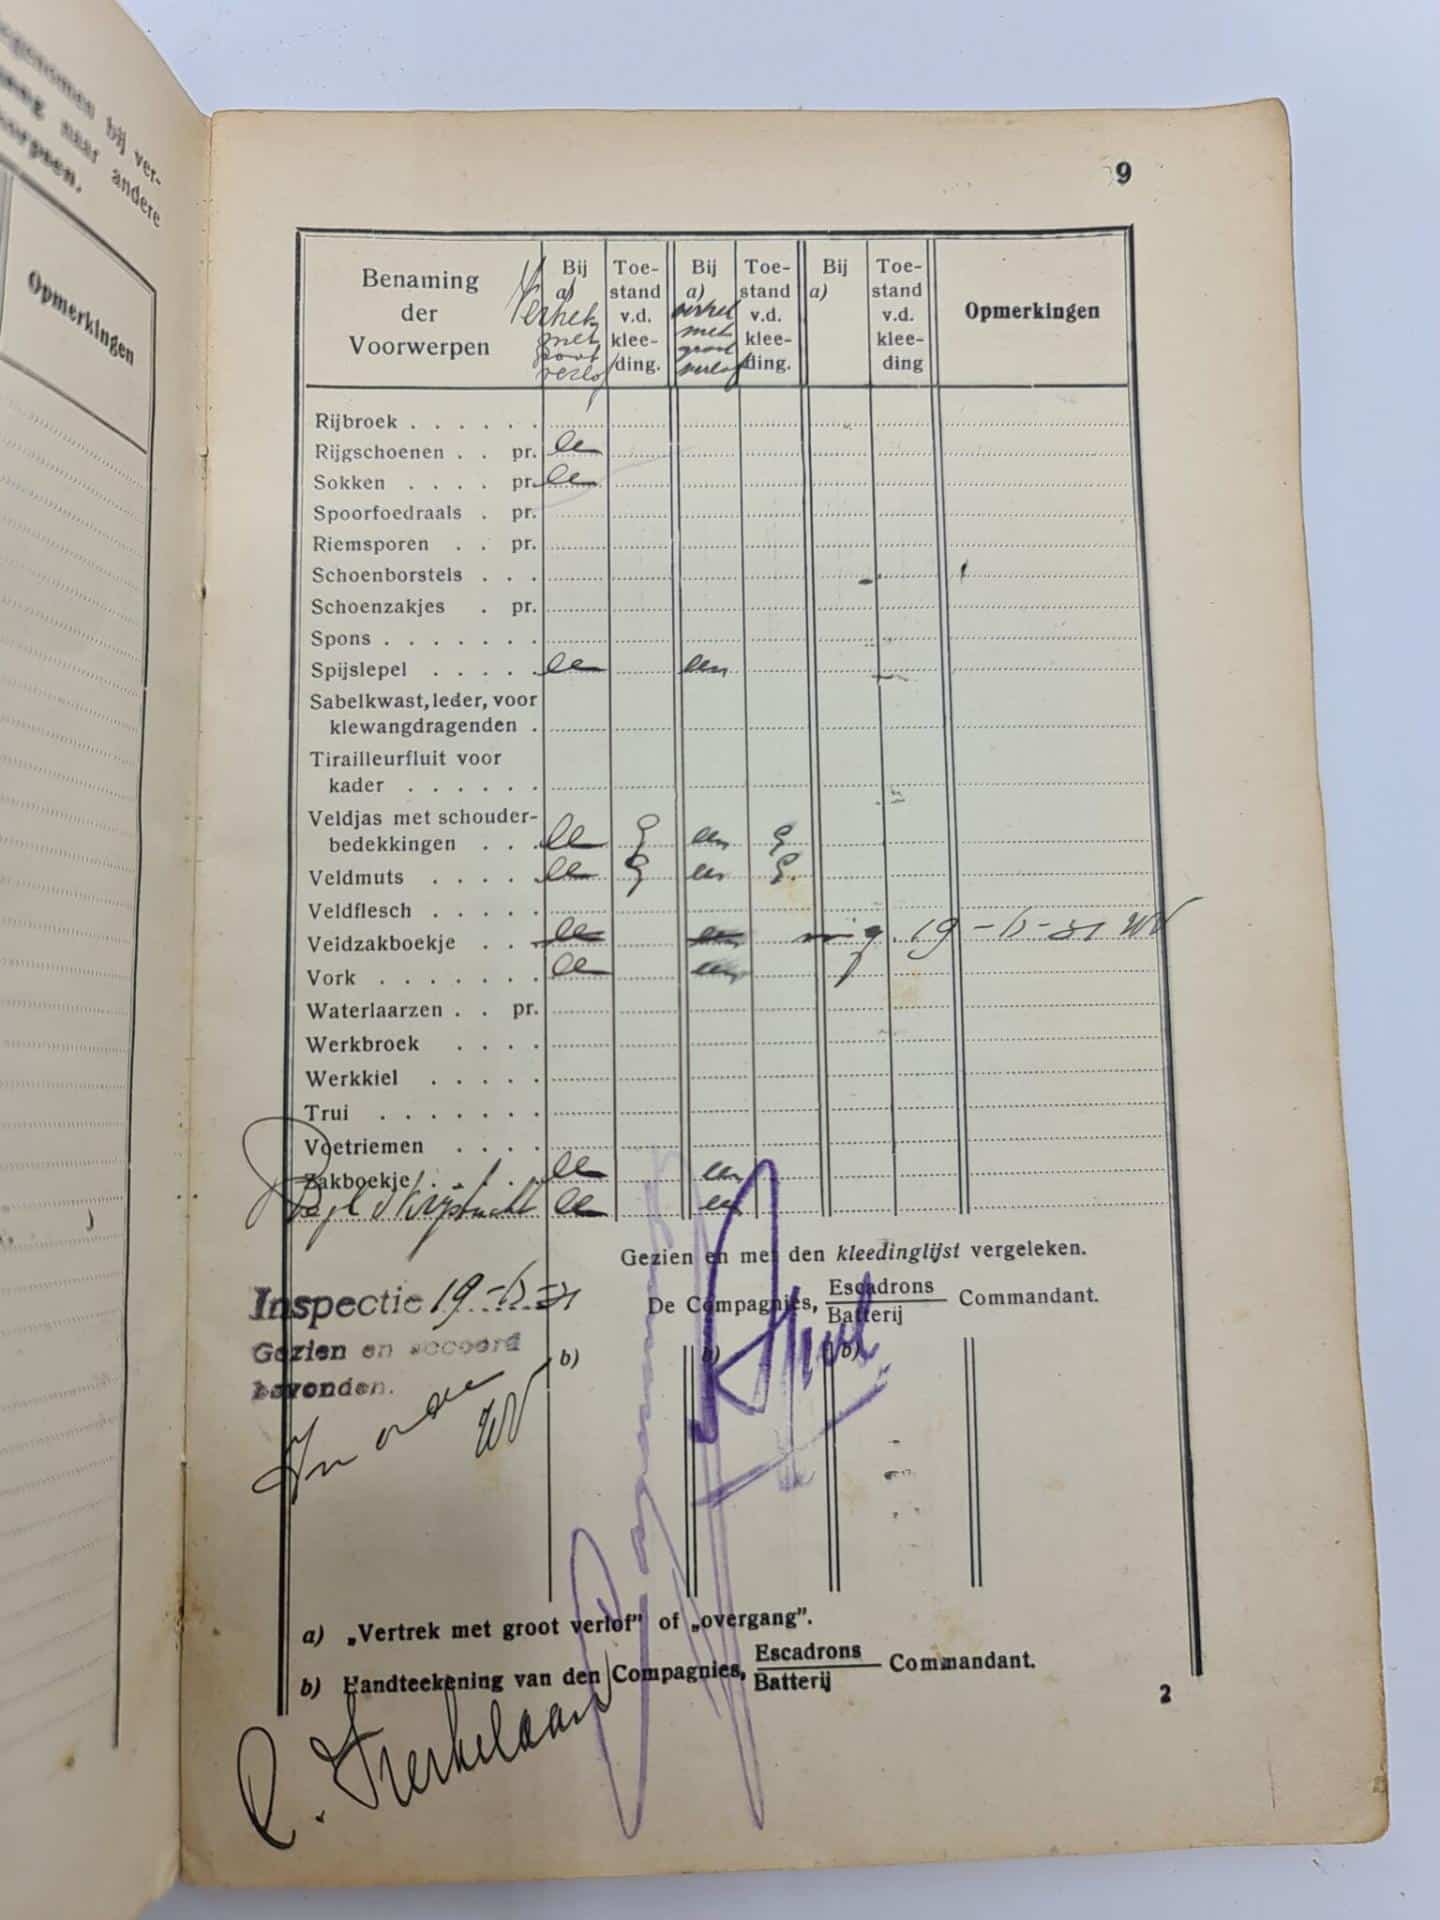 genomen bij ver-
naar andere
korpsen.
Opmerkingen
9
Benaming der Voorwerpen
Bij a) Vertrek met groot verlof
Toe-stand v.d. klee-ding.
Bij a) vertrek met groot verlof
Toe-stand v.d. klee-ding.
Bij a)
Toe-stand v.d. klee-ding
Opmerkingen
Rijbroek . . . . . .
Rijgschoenen . . pr. een
Sokken . . . . pr. een
Spoorfoedraals . pr.
Riemsporen . . pr.
Schoenborstels . . .
Schoenzakjes . pr.
Spons . . . . . . .
Spijslepel . . . . . een een
Sabelkwast, leder, voor
klewangdragenden .
Tirailleurfluit voor
kader . . . . . .
Veldjas met schouder-
bedekkingen . . . een g een g
Veldmuts . . . . een g een g.
Veldflesch . . . .
Veldzakboekje . . . een een
Vork . . . . . . . een een
Waterlaarzen . . pr.
Werkbroek . . . .
Werkkiel . . . . .
Trui . . . . . . .
Voetriemen . . . .
Zakboekje . . . . een een
Regl. v Krijgstucht een een
Gezien en met den kleedinglijst vergeleken.
De Compagnies, Escadrons Batterij Commandant.
Inspectie 19
Gezien en accoord
bevonden.
In orde
b)
b)
b)
a) „Vertrek met groot verlof" of „overgang".
b) Handteekening van den Compagnies, Escadrons Batterij Commandant.
2